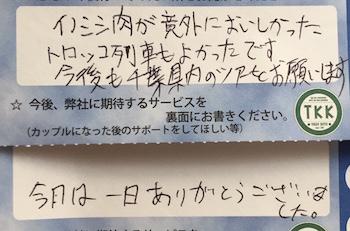 イノシシ肉が意外においしかった
トロッコ列車もよかったです
今後も千葉県内のツアーをお願いします
☆ 今後、弊社に期待するサービスを
裏面にお書きください。
(カップルになった後のサポートをしてほしい等)
TKK
今日は一日ありがとうございま
した。